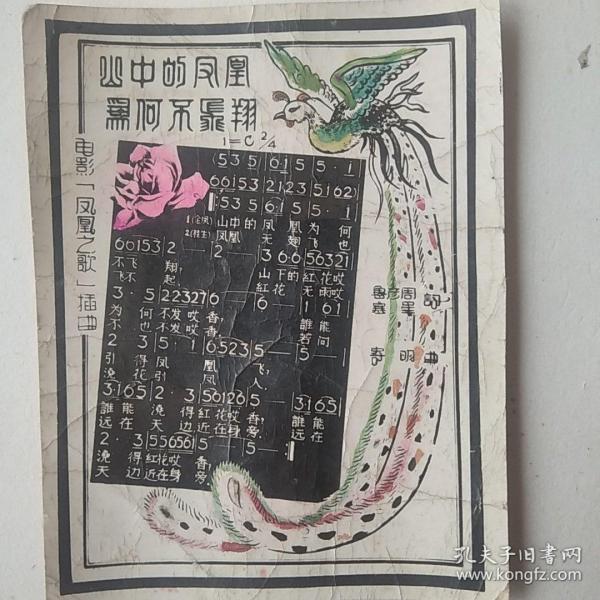 山中的凤凰
为何不飛翔
1=C 2/4
电影「凤凰之歌」插曲
魯彥周 詞
寒 明 曲
(5 3 5 6·1 5 5 · 1
6 6 1 5 3 2 1 2 3 5 1 6 2)
5 3 5 6·1 5 5 · 1
山中的 凤凰 为何
凤凰 无翅 飞也
6 6 1 5 3 2 — 2 — 3 6 6 5 6 3 2 1
不飞翔, 山下的红花哎
飞不起, 红花无雨哎
3 · 5 2 2 3 2 7 6 — 6 — 1 · 6 1
为何不发哎香, 誰能
不也不发哎香, 誰若能问
2 · 3 5 · 1 6 5 2 3 5 — 5 —
引得凤凰飞,
澆花引凤人,
3·1 6 5 2 · 3 5 6 1 2 6 5 · 3·1 6 5
誰能 澆得紅花哎香, 誰能
远在 天边近在身旁, 远在
2 · 3 5 5 6 5 6 5 5 —
澆得紅花哎香
天边近在身旁
孔夫子旧书网
www.kongfz.com